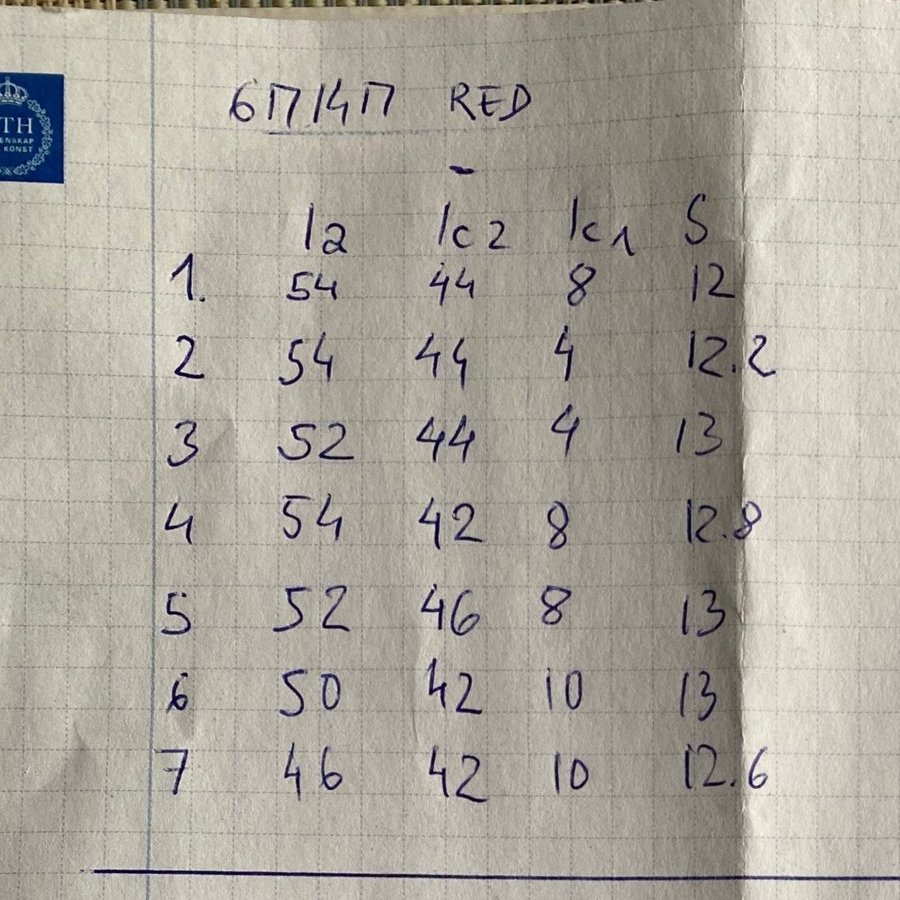 TH
ENSKAP
KONST
6П14П RED
Ia Ic2 Ic1 S
1. 54 44 8 12
2 54 44 4 12.2
3 52 44 4 13
4 54 42 8 12.8
5 52 46 8 13
6 50 42 10 13
7 46 42 10 12.6